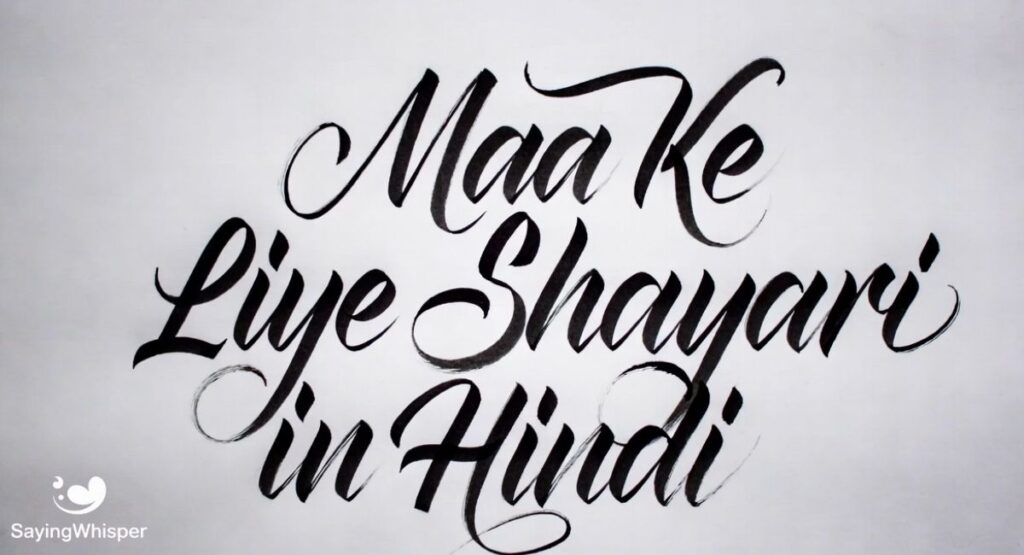 Maa Ke
Liye Shayari
in Hindi
SayingWhisper